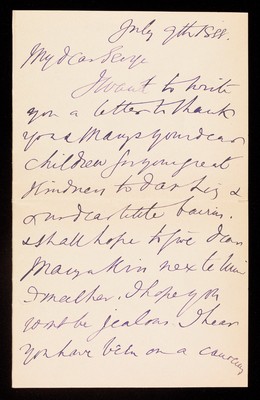 July 9th 1888.
My dear George
I want to write
you a letter to thank
you & Mary & your dear
children for your great
kindness to dear Liz &
& our dear little bairn.
I shall hope to give dear
Mary a kiss next time
I meet her. I hope you
wont be jealous. I hear
you have been on a canoeing